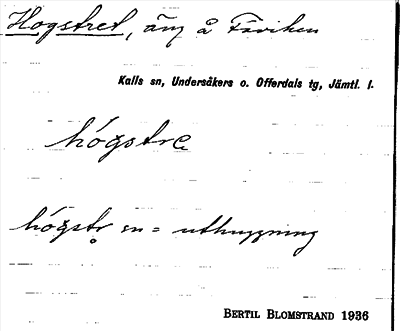 Hogstret, äng å Fäviken
Kalls sn, Undersåkers o. Offerdals tg, Jämtl. l.
hógstre
hógstr̥ en = uthuggning
BERTIL BLOMSTRAND 1936